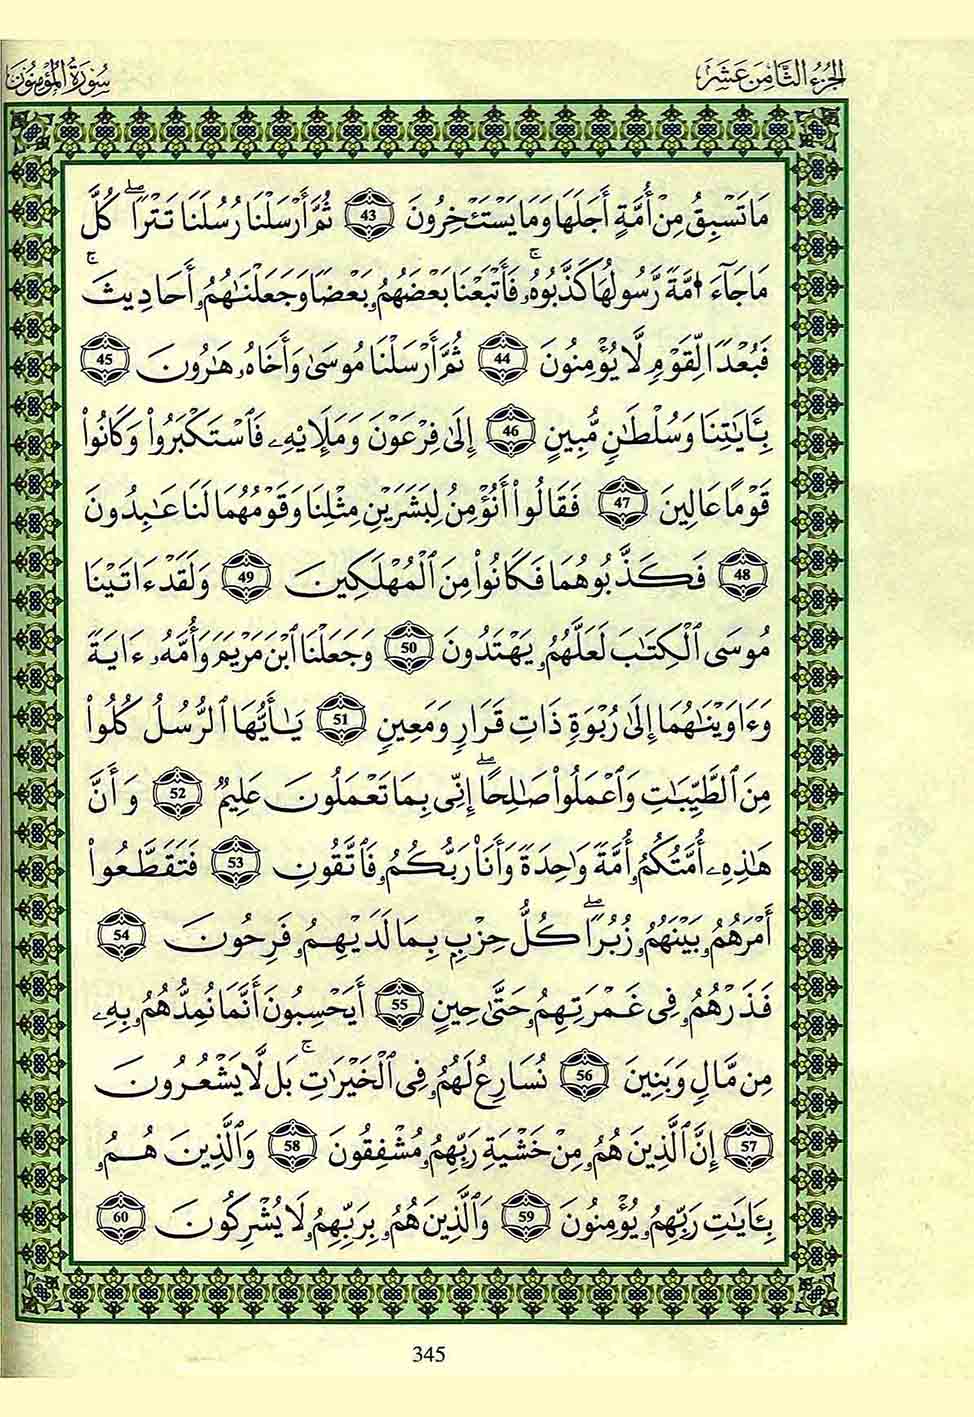 الجُزْءُ الثَّامِنَ عَشَرَ
سُورَةُ المُؤْمِنُونَ
مَا تَسْبِقُ مِنْ أُمَّةٍ أَجَلَهَا وَمَا يَسْتَـْٔخِرُونَ 43 ثُمَّ أَرْسَلْنَا رُسُلَنَا تَتْرًاۖ كُلَّ
مَا جَآءَ ا۬مَّةً رَّسُولُهَا كَذَّبُوهُۥۚ فَأَتْبَعْنَا بَعْضَهُمُۥ بَعْضًا وَجَعَلْنَٰهُمُۥ أَحَادِيثَۚ
فَبُعْدًا لِّقَوْمٍ لَّا يُؤْمِنُونَ 44 ثُمَّ أَرْسَلْنَا مُوسَىٰ وَأَخَاهُۥ هَٰرُونَ 45
بِـَٔايَٰتِنَا وَسُلْطَٰنٍ مُّبِينٍ 46 إِلَىٰ فِرْعَوْنَ وَمَلَإِيْهِۦ فَٱسْتَكْبَرُواْ وَكَانُواْ
قَوْمًا عَالِينَ 47 فَقَالُواْ أَنُؤْمِنُ لِبَشَرَيْنِ مِثْلِنَا وَقَوْمُهُمَا لَنَا عَٰبِدُونَ
48 فَكَذَّبُوهُمَا فَكَانُواْ مِنَ ٱلْمُهْلَكِينَ 49 وَلَقَدْ ءَاتَيْنَا
مُوسَى ٱلْكِتَٰبَ لَعَلَّهُمُۥ يَهْتَدُونَ 50 وَجَعَلْنَا ٱبْنَ مَرْيَمَ وَأُمَّهُۥ ءَايَةً
وَءَاوَيْنَٰهُمَا إِلَىٰ رُبْوَةٍ ذَاتِ قَرَارٍ وَمَعِينٍ 51 يَٰٓأَيُّهَا ٱلرُّسُلُ كُلُواْ
مِنَ ٱلطَّيِّبَٰتِ وَٱعْمَلُواْ صَٰلِحًاۖ إِنِّى بِمَا تَعْمَلُونَ عَلِيمٌ 52 وَأَنَّ
هَٰذِهِۦ أُمَّتُكُمُۥ أُمَّةً وَٰحِدَةً وَأَنَا۠ رَبُّكُمُۥ فَٱتَّقُونِ 53 فَتَقَطَّعُواْ
أَمْرَهُمُۥ بَيْنَهُمُۥ زُبُرًاۖ كُلُّ حِزْبٍ بِمَا لَدَيْهِمُۥ فَرِحُونَ 54
فَذَرْهُمُۥ فِى غَمْرَتِهِمُۥ حَتَّىٰ حِينٍ 55 أَيَحْسِبُونَ أَنَّمَا نُمِدُّهُمُۥ بِهِۦ
مِن مَّالٍ وَبَنِينَ 56 نُسَارِعُ لَهُمُۥ فِى ٱلْخَيْرَٰتِۚ بَل لَّا يَشْعُرُونَ
57 إِنَّ ٱلَّذِينَ هُمُۥ مِنْ خَشْيَةِ رَبِّهِمُۥ مُشْفِقُونَ 58 وَٱلَّذِينَ هُمُۥ
بِـَٔايَٰتِ رَبِّهِمُۥ يُؤْمِنُونَ 59 وَٱلَّذِينَ هُمُۥ بِرَبِّهِمُۥ لَا يُشْرِكُونَ 60
345